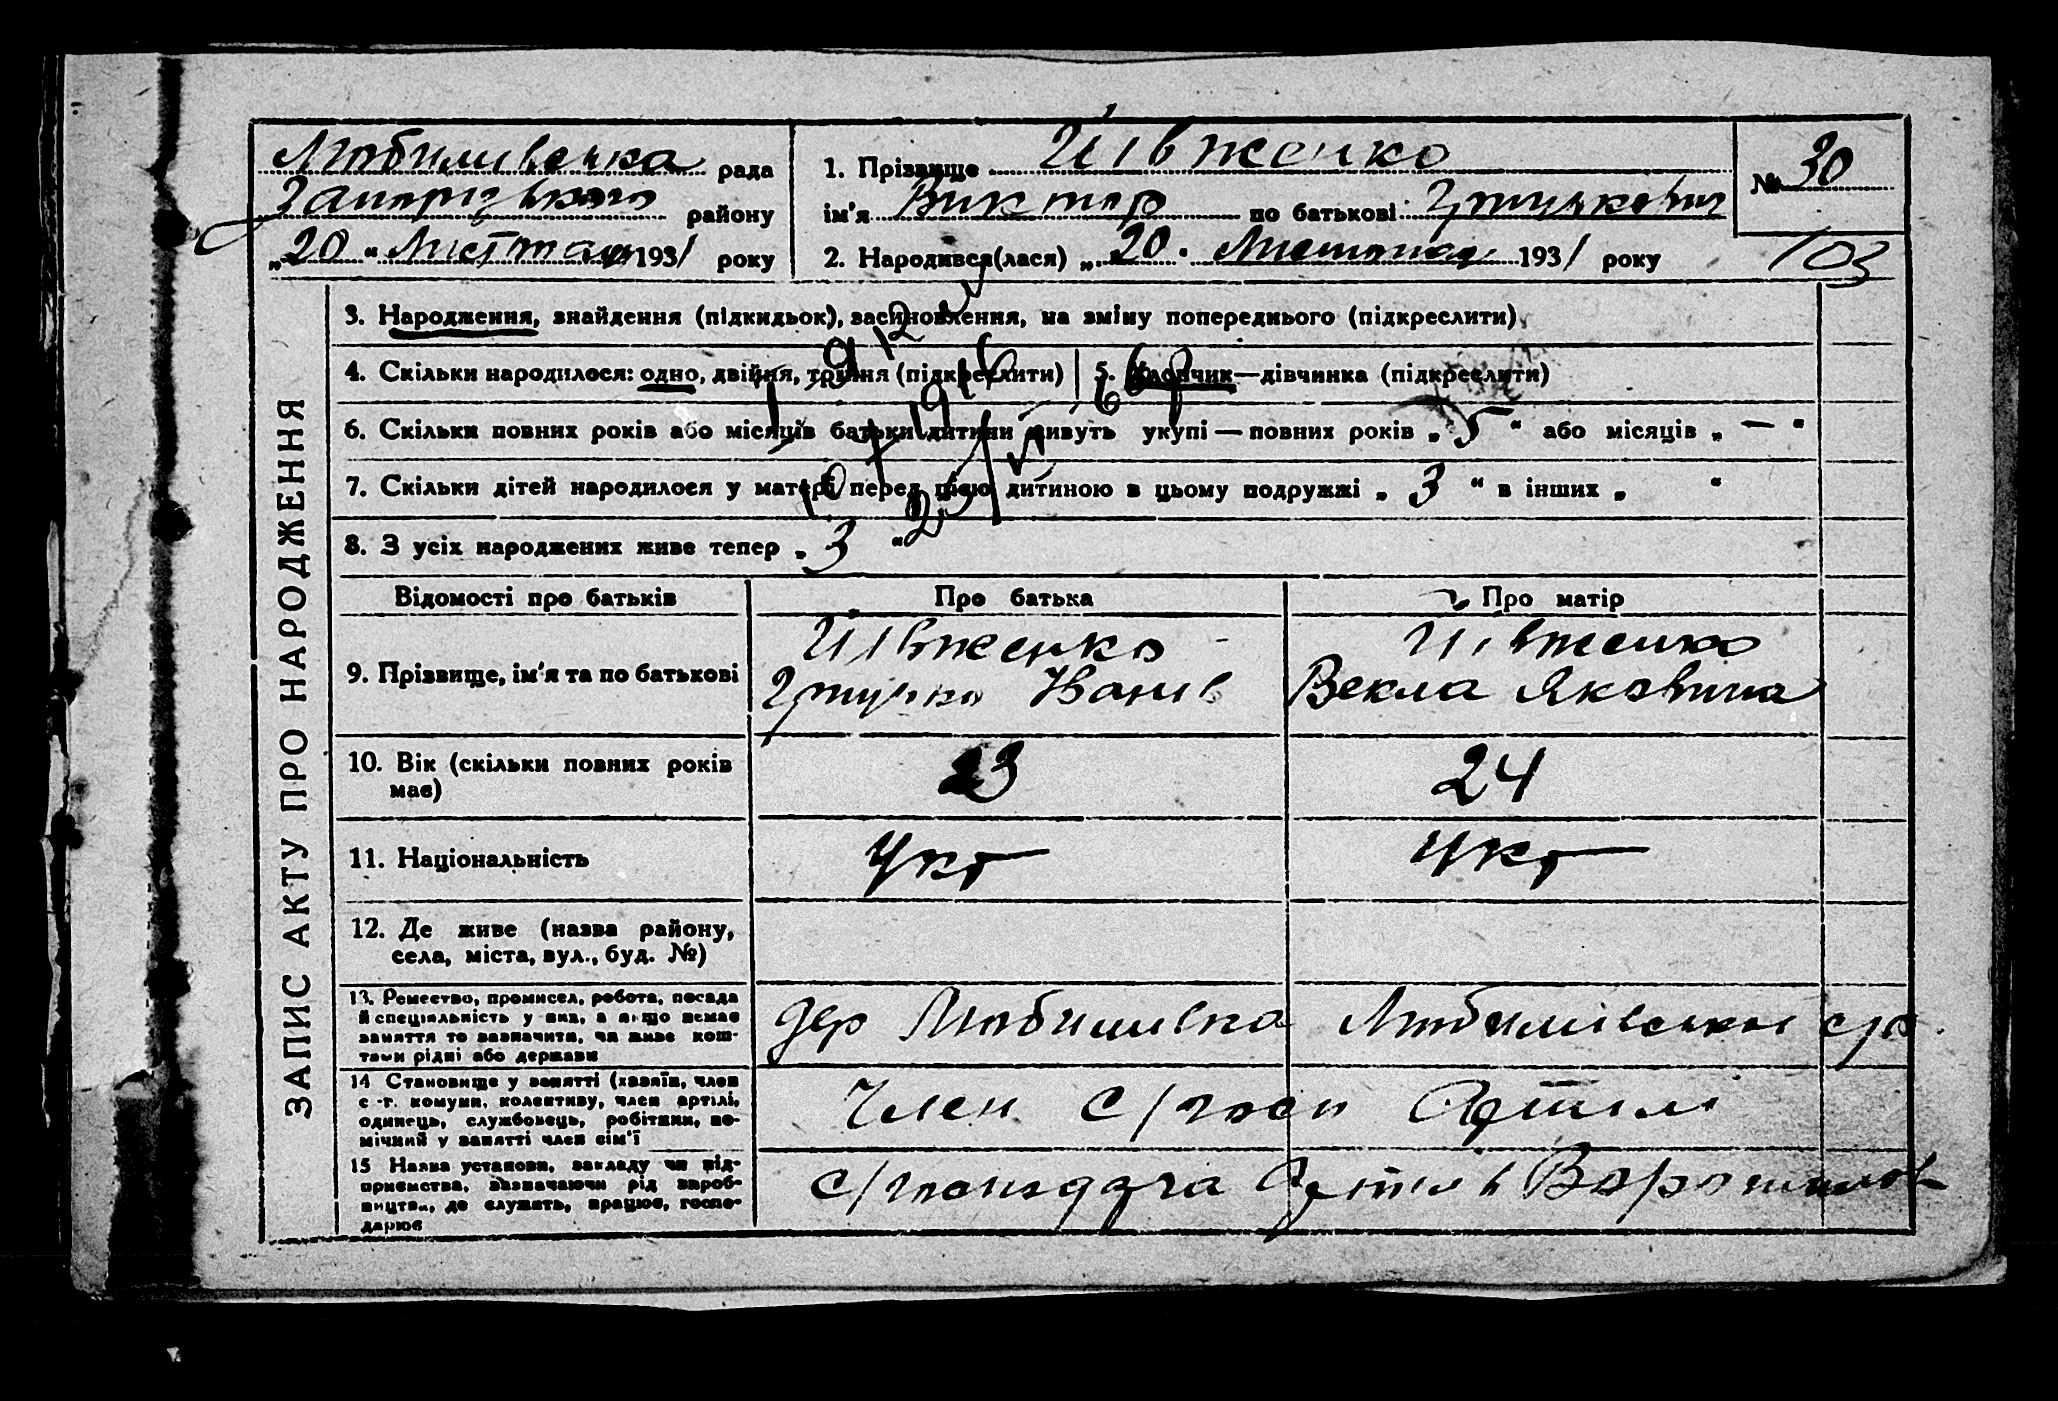 Любимівська рада
Запорізького району
„20“ Листопад 1931 року
1. Прізвище Ивженко
ім'я Виктор по батькові
2. Народився(лася) „20“ Листопад 1931 року
№ 30
103
ЗАПИС АКТУ ПРО НАРОДЖЕННЯ
3. Народження, знайдення (підкидьок), засиновлення, на зміну попереднього (підкреслити)
4. Скільки народилося: одно, двійня, трійня (підкреслити) 5. Хлопчик—дівчинка (підкреслити)
6. Скільки повних років або місяців батьки дитини живуть укупі—повних років „5“ або місяців „—“
7. Скільки дітей народилося у матері перед цією дитиною в цьому подружжі „3“ в інших „ “
8. З усіх народжених живе тепер „3“
Відомості про батьків Про батька Про матір
9. Прізвище, ім'я та по батькові
Ивженко
Іванів
Ивженко
Векла Яковина
10. Вік (скільки повних років має)
23
24
11. Національність
Укр
Укр
12. Де живе (назва району,
села, міста, вул., буд. №)
13. Ремество, промисел, робота, посада
й спеціяльність у них, а якщо немає
заняття то зазначити, чи живе кош-
тами рідні або держави
Любимівка
Любимівської с/р.
14 Становище у занятті (хазяїн, член
с.-г. комуни, колективу, член артілі,
одинець, службовець, робітник, по-
мічний у занятті член сім'ї
Член с/госп Артилі
15 Назва установи, закладу чи під-
приємства, зазначаючи рід вироб-
ництва, де служить, працює, госпо-
дарює
Ворошилов